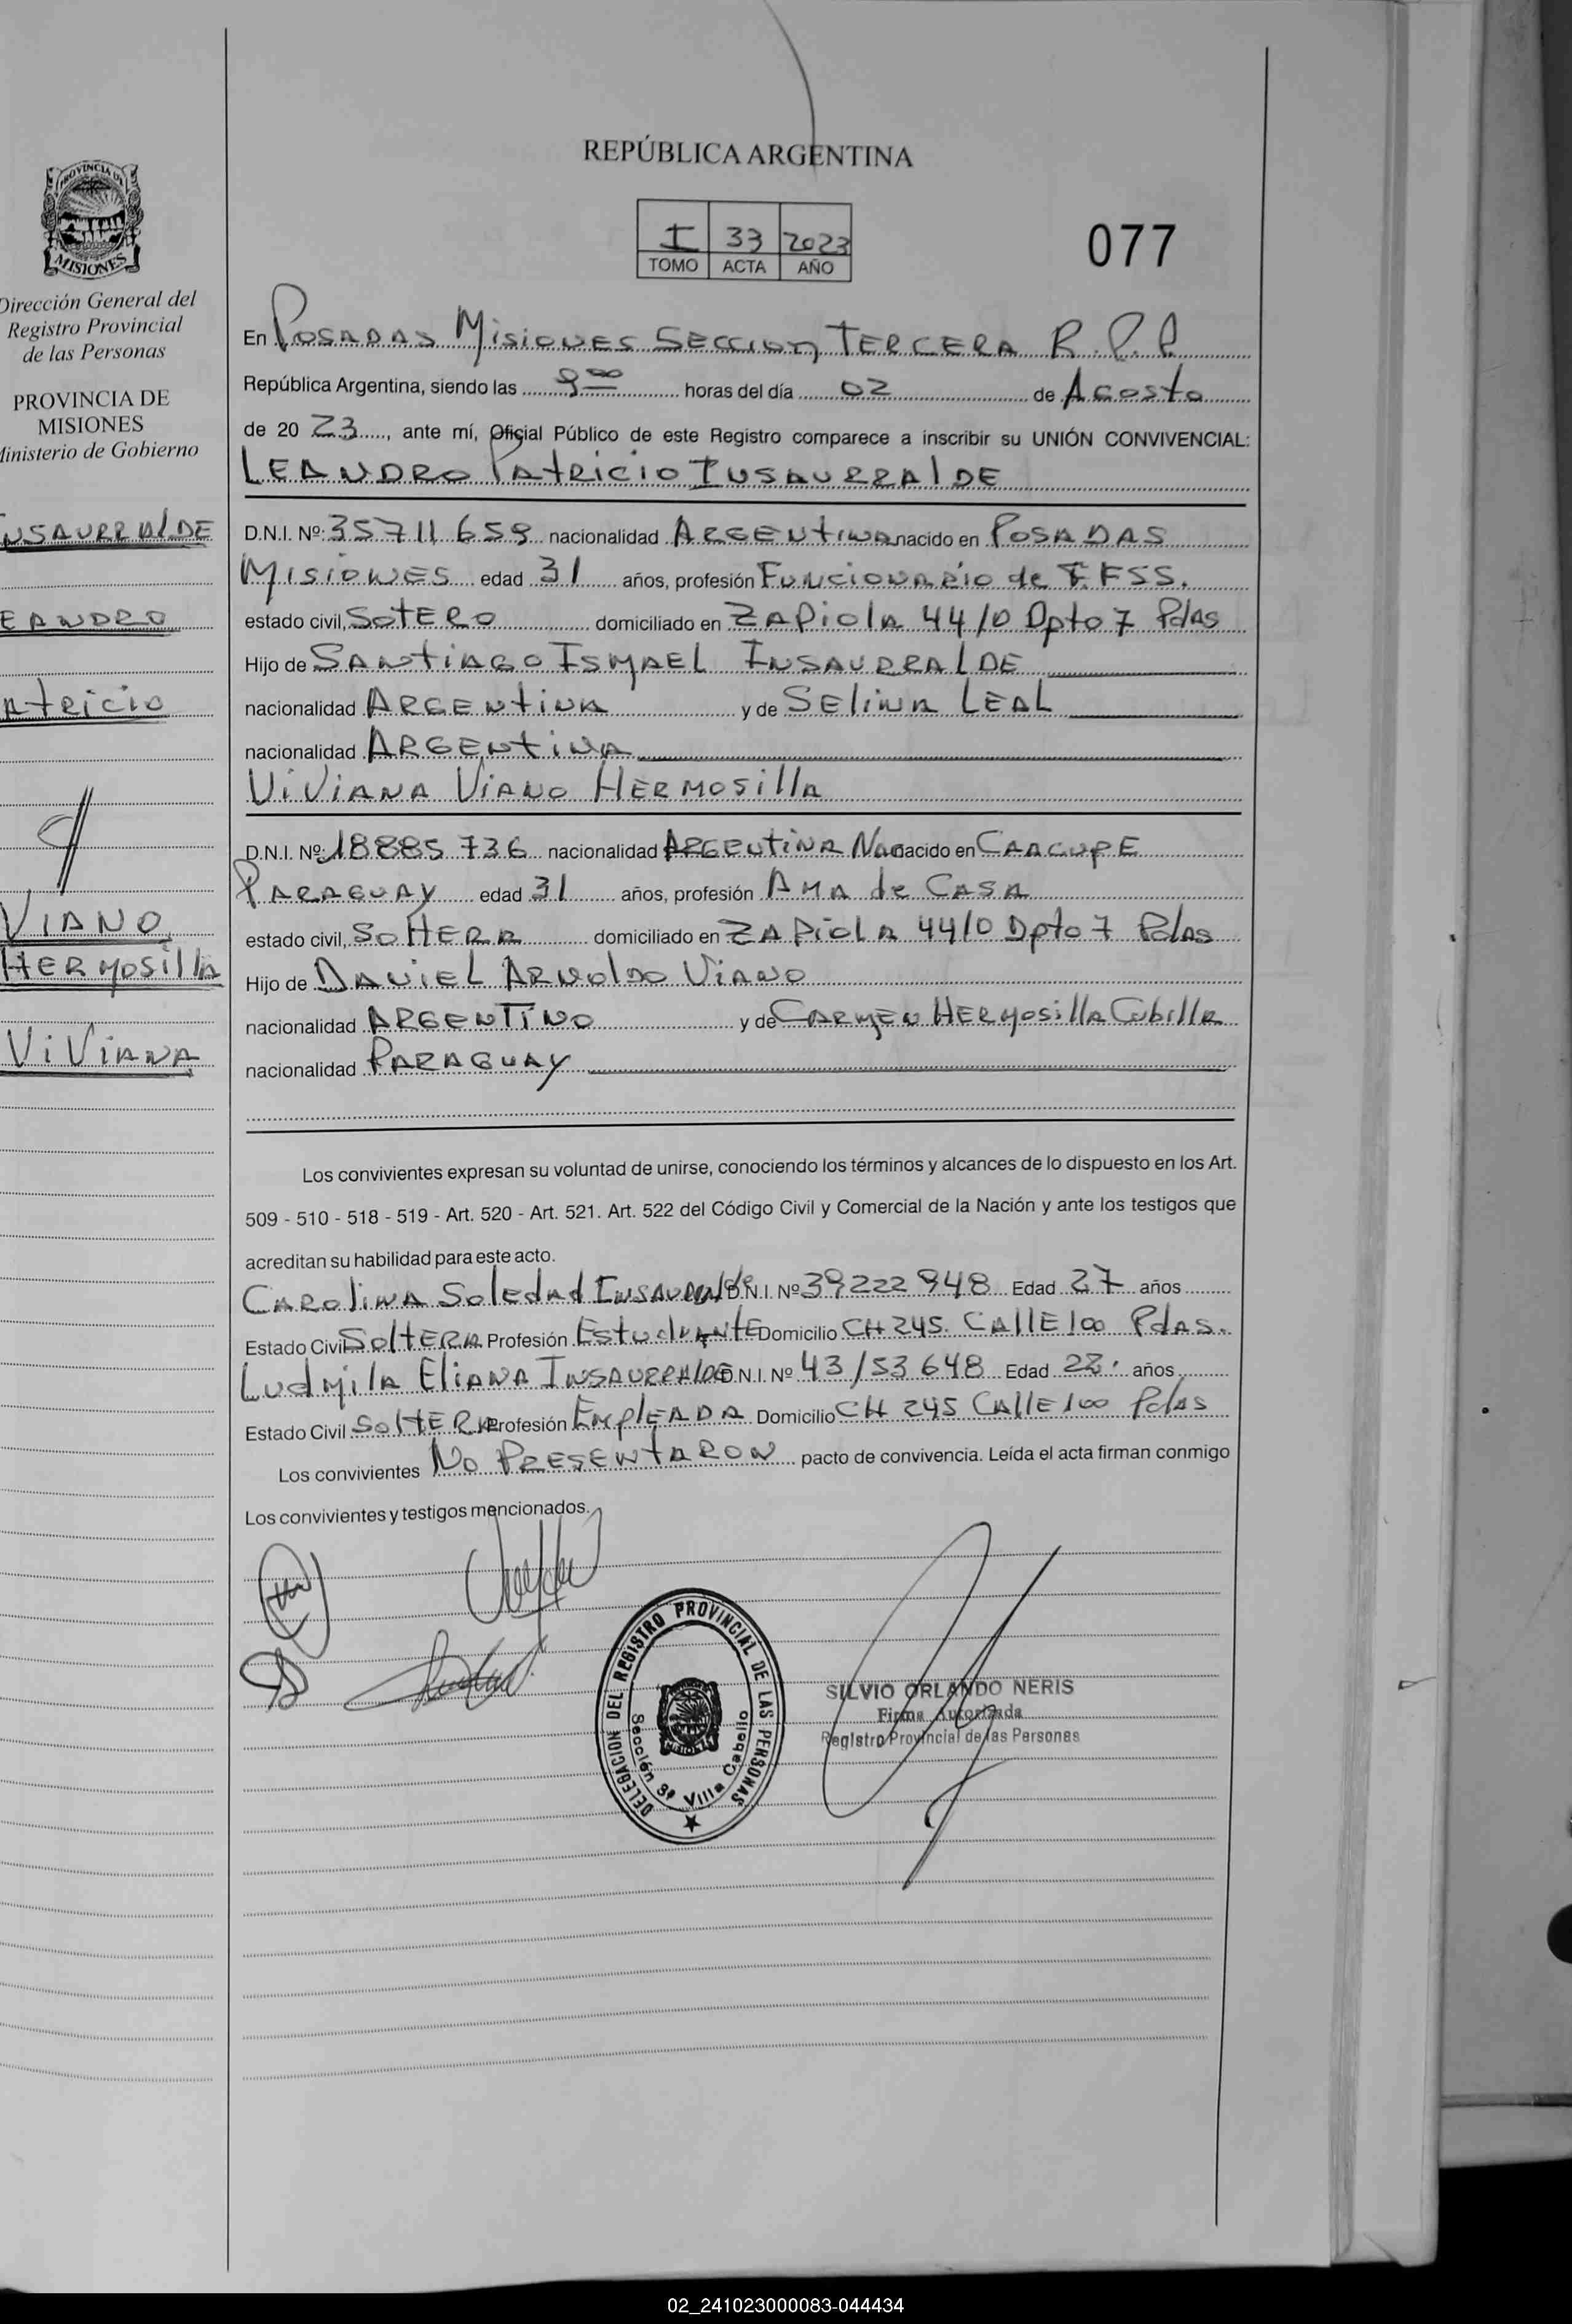 PROVINCIA DE
MISIONES
Dirección General del
Registro Provincial
de las Personas
PROVINCIA DE
MISIONES
Ministerio de Gobierno
INSAURRAlDE
LEANDRO
PAtRicio
VIANO
HERMOSilla
ViViANA
REPÚBLICA ARGENTINA
I 33 2023
TOMO ACTA AÑO
077
En POSADAS MisiONES SECCION TERCERA R.P.P
República Argentina, siendo las 9 00 horas del día 02 de Agosto
de 20 23, ante mí, Oficial Público de este Registro comparece a inscribir su UNIÓN CONVIVENCIAL:
LEANDRO PAtRicio INSAURRAlDE
D.N.I. Nº: 35711659 nacionalidad ARGENtiNA nacido en POSADAS
MISIONES edad 31 años, profesión FUNCIONARIO de F.FSS.
estado civil, SOtERO domiciliado en ZAPiolA 4410 Dpto 7 PdAs
Hijo de SANtiAGO ISMAEL INSAURRALDE
nacionalidad ARGENtiNA y de SEliNA LEAL
nacionalidad ARGENtiNA
ViViANA ViANO HERMOSillA
D.N.I. Nº: 18885736 nacionalidad ARGENtiNA Na nacido en CAACUPE
PARAGUAY edad 31 años, profesión AMA de CASA
estado civil, SOltERA domiciliado en ZAPiolA 4410 Dpto 7 PdAs
Hijo de DANiEL ARNOlDO ViANO
nacionalidad ARGENTINO y de CARMEN HERMOSillA CubillA
nacionalidad PARAGUAY
Los convivientes expresan su voluntad de unirse, conociendo los términos y alcances de lo dispuesto en los Art.
509 - 510 - 518 - 519 - Art. 520 - Art. 521. Art. 522 del Código Civil y Comercial de la Nación y ante los testigos que
acreditan su habilidad para este acto.
CAROliNA SolEdAd INSAURRAlde D.N.I. Nº 39222948 Edad 27 años
Estado Civil SOltERA Profesión EStudiANtE Domicilio CH 245. CAllE 100 PdAS.
LudMilA EliANA INSAURRAlDE D.N.I. Nº 43153648 Edad 22. años
Estado Civil SOltERA Profesión EMplEADA Domicilio CH 245 CAllE 100 PdAs
Los convivientes No PRESENtARON pacto de convivencia. Leída el acta firman conmigo
Los convivientes y testigos mencionados.
DELEGACION DEL REGISTRO PROVINCIAL DE LAS PERSONAS
Sección 3ª Villa Cabello
SILVIO ORLANDO NERIS
Firma Autorizada
Registro Provincial de las Personas
02_241023000083-044434